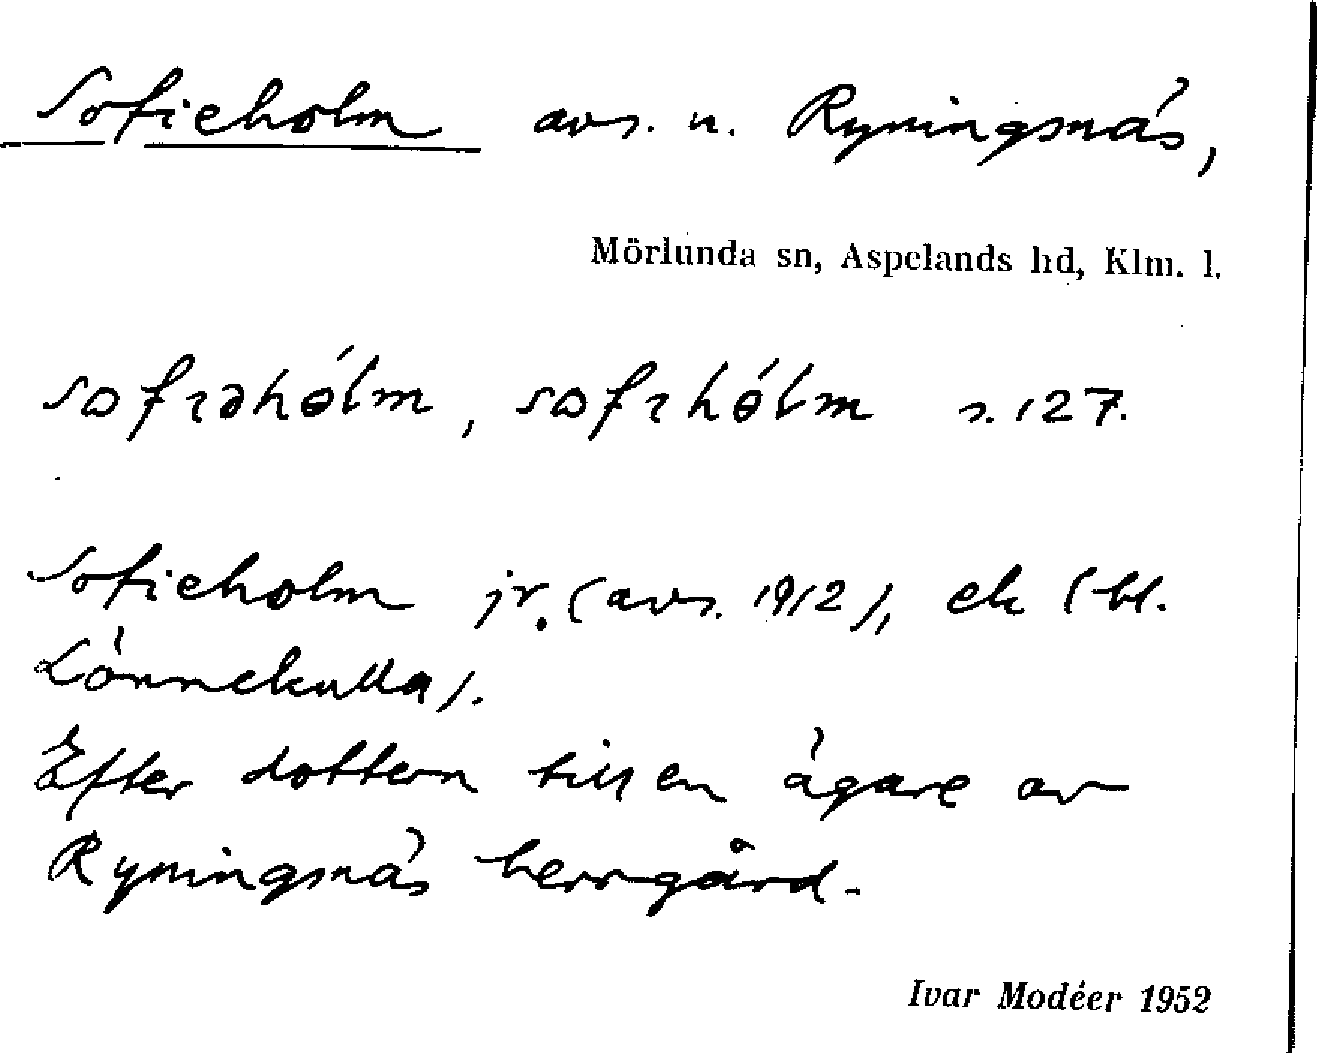 Sofieholm avs. u. Ryningsnäs,
Mörlunda sn, Aspelands hd, Klm. l.
s. 127.
Sofieholm jr. (avs. 1912), ek (bl.
Lönnekulla).
Efter dottern till en ägare av
Ryningsnäs herrgård.
Ivar Modéer 1952